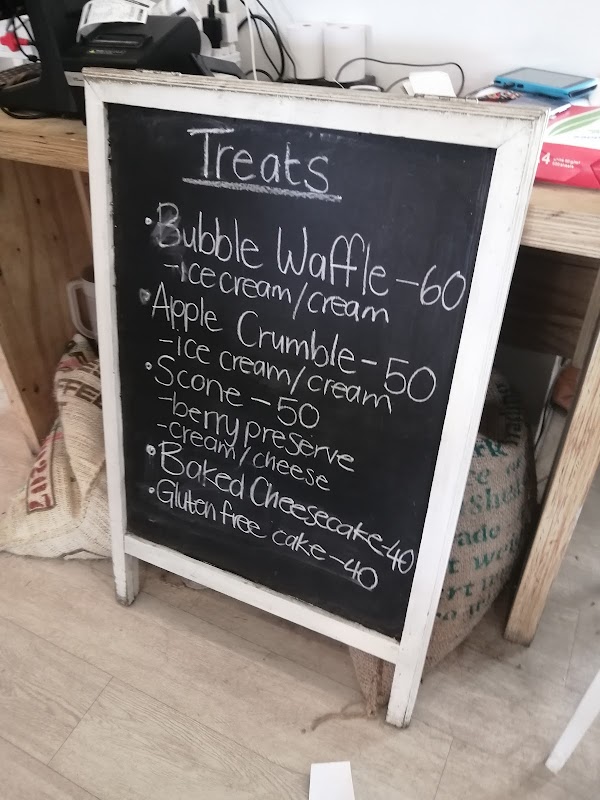 Treats
• Bubble Waffle - 60
- Ice cream/cream
• Apple Crumble - 50
- Ice cream/cream
• Scone - 50
- berry preserve
- cream/cheese
• Baked Cheesecake - 40
• Gluten free cake - 40
4